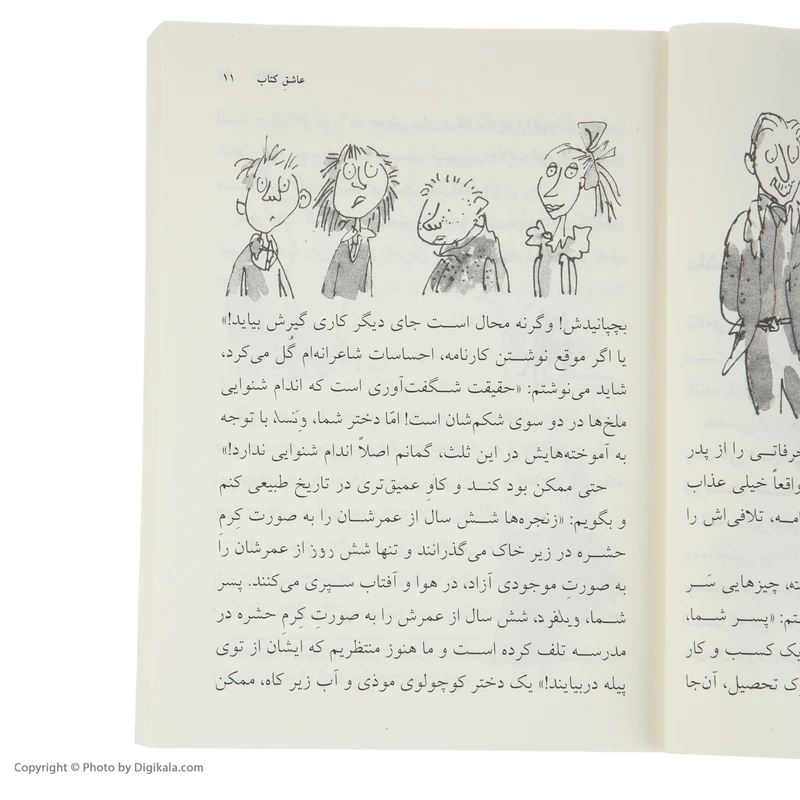 عاشقِ کتاب ۱۱
بچپانیدش! وگرنه محال است جای دیگر کاری گیرش بیاید!»
یا اگر موقع نوشتن کارنامه، احساسات شاعرانه‌ام گُل می‌کرد،
شاید می‌نوشتم: «حقیقت شگفت‌آوری است که اندام شنوایی
ملخ‌ها در دو سوی شکم‌شان است! امّا دختر شما، وَنسا، با توجه
به آموخته‌هایش در این ثلث، گمانم اصلاً اندام شنوایی ندارد!»
حتی ممکن بود کند و کاوِ عمیق‌تری در تاریخ طبیعی کنم
و بگویم: «زنجره‌ها شش سال از عمرشان را به صورت کِرمِ
حشره در زیر خاک می‌گذرانند و تنها شش روز از عمرشان را
به صورتِ موجودی آزاد، در هوا و آفتاب سپری می‌کنند. پسر
شما، ویلفرد، شش سال از عمرش را به صورتِ کِرمِ حشره در
مدرسه تلف کرده است و ما هنوز منتظریم که ایشان از توی
پیله دربیایند!» یک دختر کوچولوی موذی و آب زیر کاه، ممکن
حرفاتی را از پدر
واقعاً خیلی عذاب
تلافی‌اش را
چیزهایی سَر
«پسر شما،
یک کسب و کار
تحصیل، آن‌جا
Copyright © Photo by Digikala.com